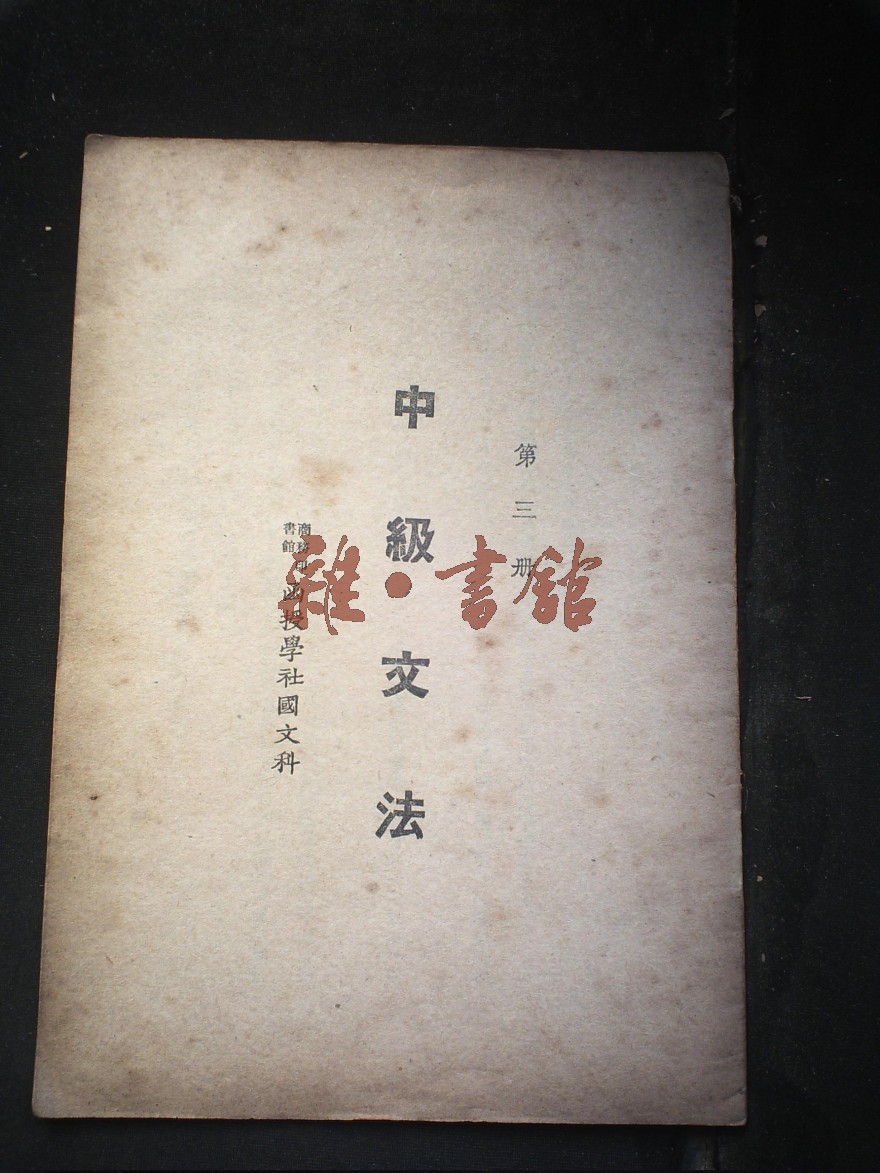 第三册
中級文法
商務印書館函授學社國文科
雜·書館